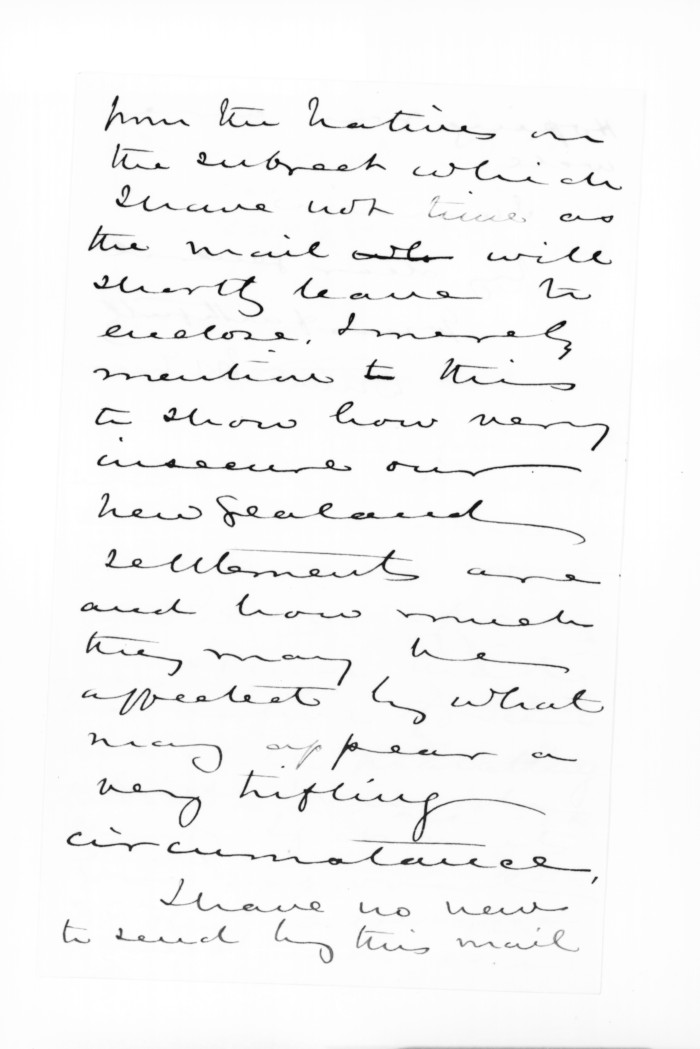 from the Natives on
the subject which
I have not time as
the mail will
shortly leave to
enclose. I merely
mention to this
to show how very
insecure our
New Zealand
settlements are
and how much
they may be
affected by what
may appear a
very trifling
circumstance.
I have no news
to send by this mail